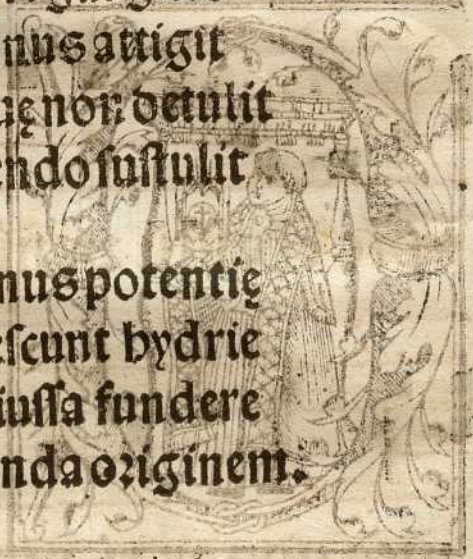 nus attigit
uę non detulit
endo sustulit
nus potentię
escunt hydrie
iussa fundere
nda originem.